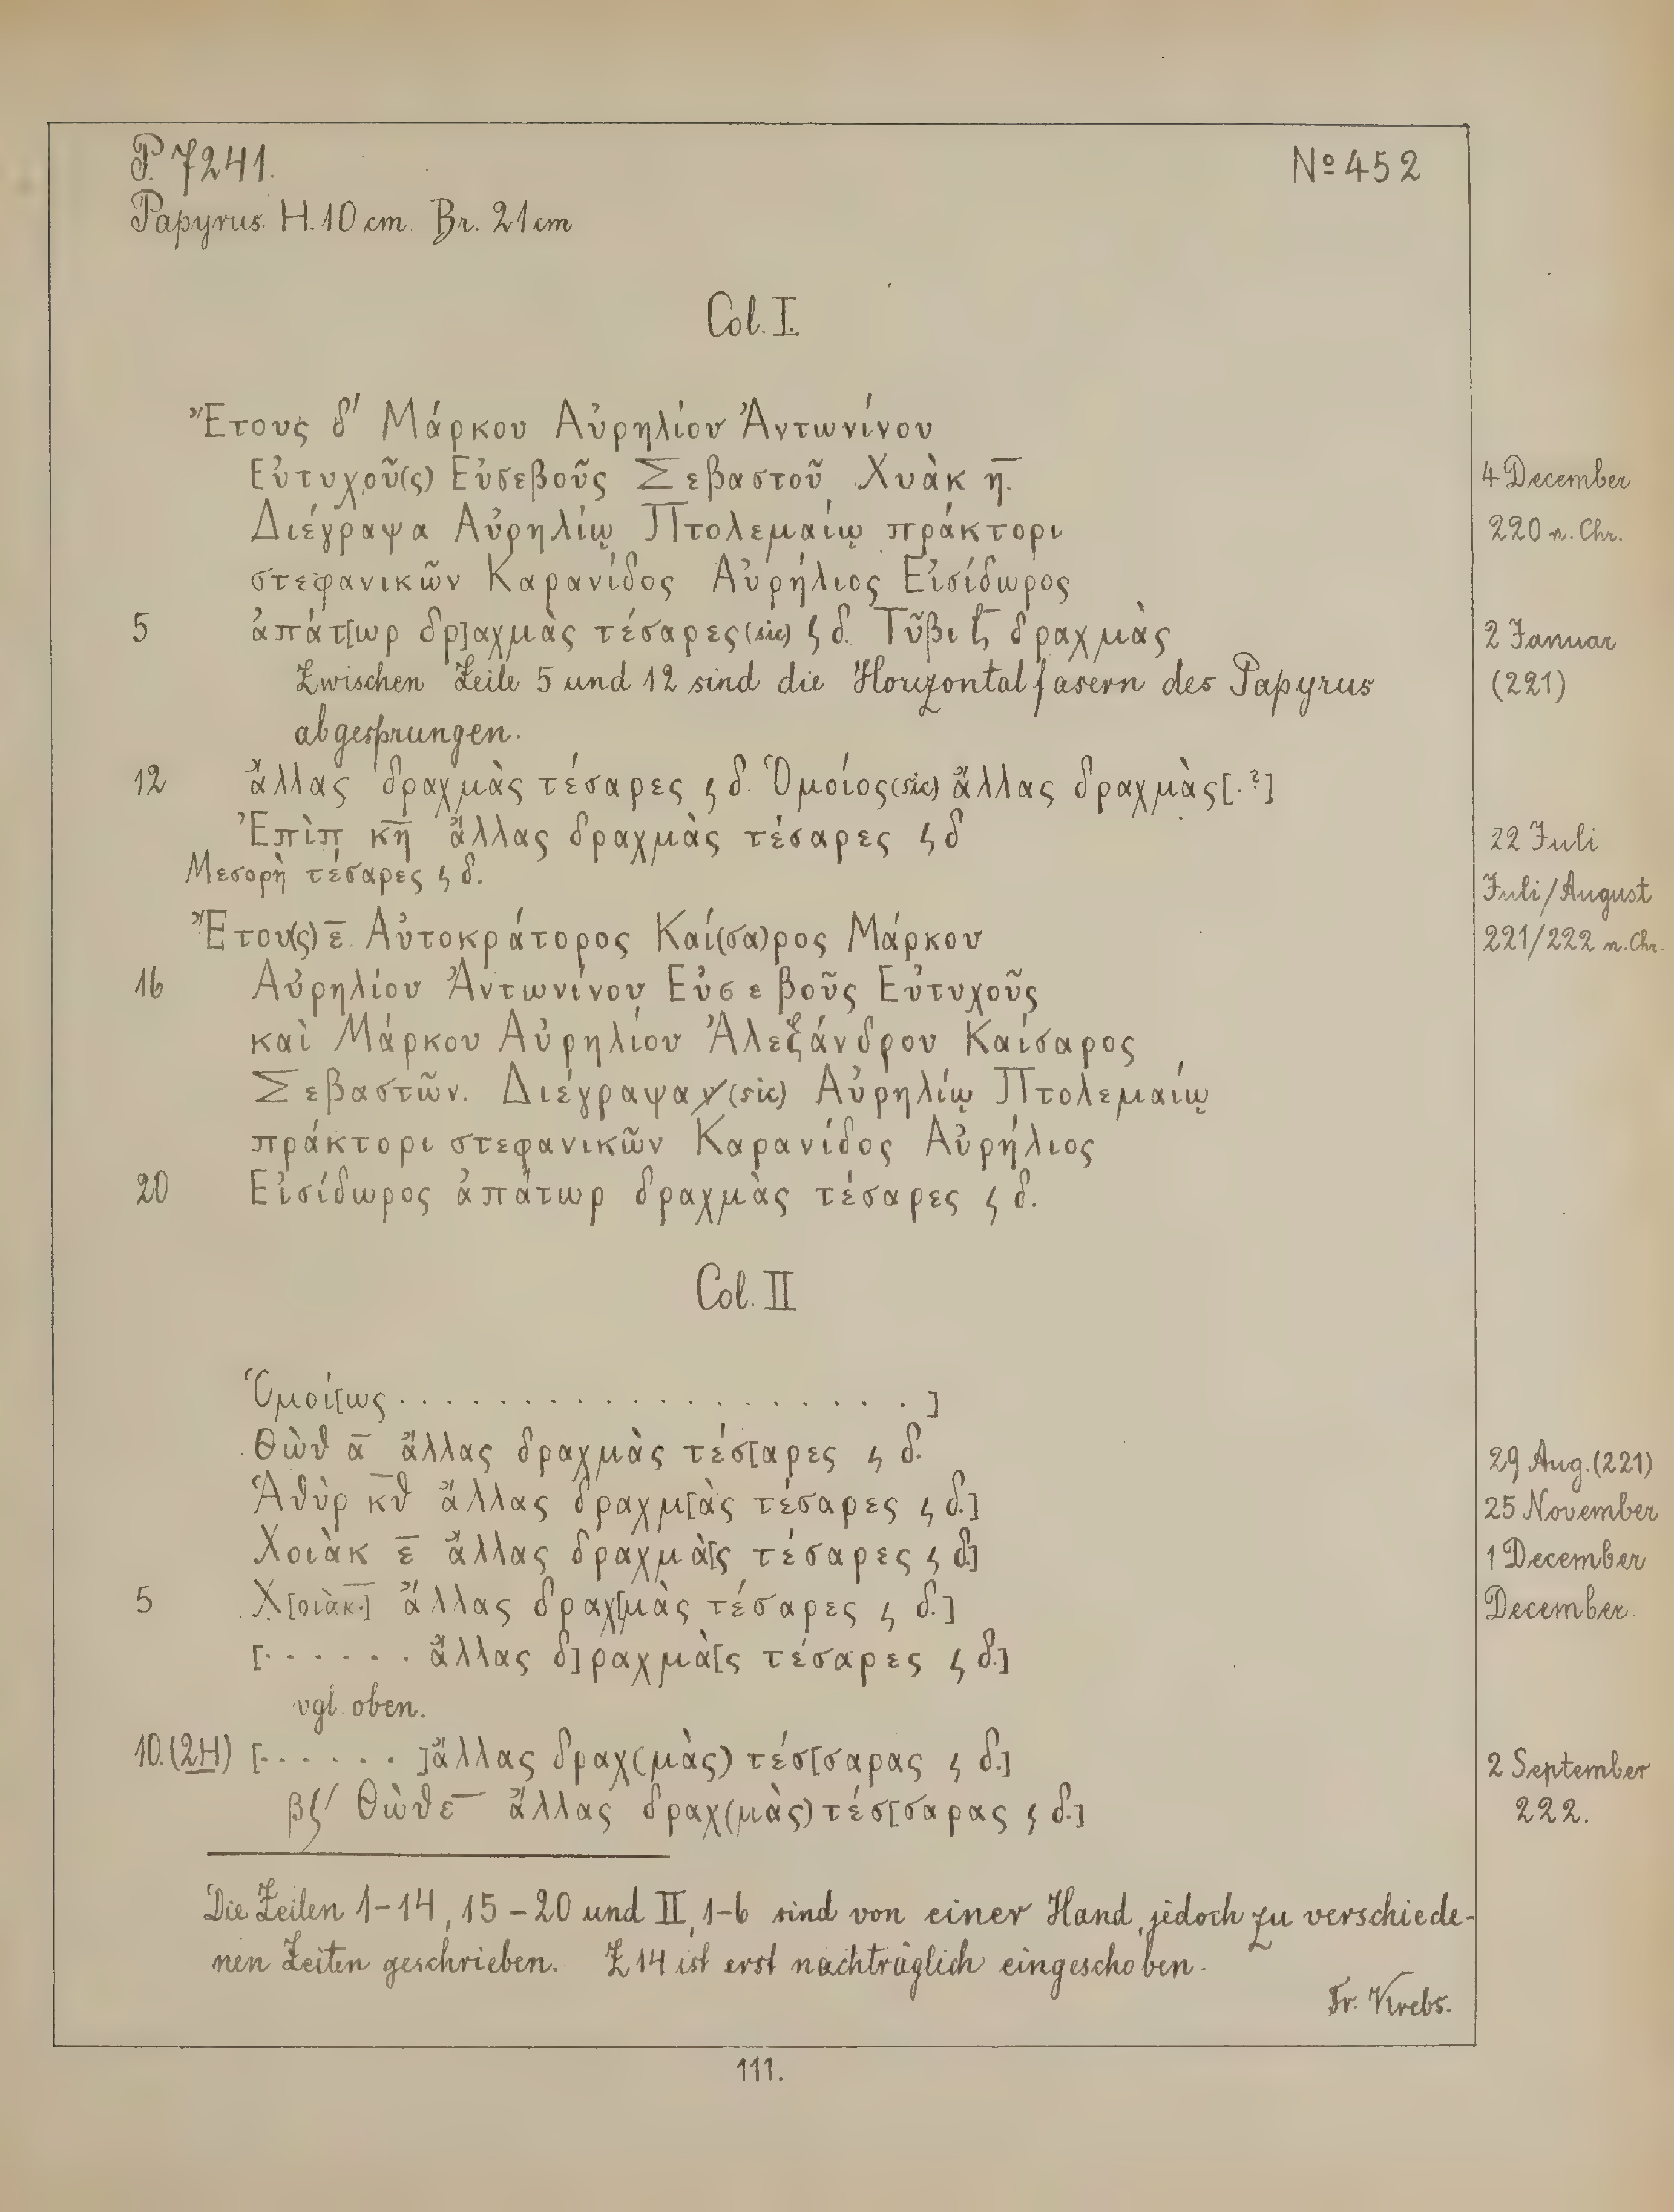 P. 7241.
No 452
Papyrus. H. 10 cm. Br. 21 cm.
Col. I.
Ἔτους δ' Μάρκου Αὐρηλίου Ἀντωνίνου
Εὐτυχοῦ(ς) Εὐσεβοῦς Σεβαστοῦ Χυὰκ η̅.
4 December
Διέγραψα Αὐρηλίῳ Πτολεμαίῳ πράκτορι
220 n. Chr.
στεφανικῶν Καρανίδος Αὐρήλιος Εἰσίδωρος
5 ἀπάτ[ωρ δρ]αχμὰς τέσαρες (sic) ϟ δ. Τῦβι ζ̅ δραχμὰς
2 Januar
Zwischen Zeile 5 und 12 sind die Horizontalfasern des Papyrus
(221)
abgesprungen.
12 ἄλλας δραχμὰς τέσαρες ϟ δ. Ὁμοίος (sic) ἄλλας δραχμὰς [.?]
Ἐπὶπ κ̅η̅ ἄλλας δραχμὰς τέσαρες ϟ δ
22 Juli
Μεσορὴ τέσαρες ϟ δ.
Juli/August
Ἔτου(ς) ε̅. Αὐτοκράτορος Καί(σα)ρος Μάρκου
221/222 n. Chr.
16 Αὐρηλίου Ἀντωνίνου Εὐσεβοῦς Εὐτυχοῦς
καὶ Μάρκου Αὐρηλίου Ἀλεξάνδρου Καίσαρος
Σεβαστῶν. Διέγραψαν (sic) Αὐρηλίῳ Πτολεμαίῳ
πράκτορι στεφανικῶν Καρανίδος Αὐρήλιος
20 Εἰσίδωρος ἀπάτωρ δραχμὰς τέσαρες ϟ δ.
Col. II
Ὁμοί[ως . . . . . . . . . . . . . . . . . . .]
Θὼθ α̅ ἄλλας δραχμὰς τέσ[αρες ϟ δ.
29 Aug. (221)
Ἁθὺρ κ̅θ̅ ἄλλας δραχμ[ὰς τέσαρες ϟ δ.]
25 November
Χοιὰκ ε̅ ἄλλας δραχμὰ[ς τέσαρες ϟ δ.]
1 December
5 Χ[οιὰκ .̅] ἄλλας δραχ[μὰς τέσαρες ϟ δ.]
December.
[. . . . . . ἄλλας δ]ραχμὰ[ς τέσαρες ϟ δ.]
vgl. oben.
10. (2H) [. . . . . . ] ἄλλας δραχ(μὰς) τέσ[σαρας ϟ δ.]
2 September
βϛ' Θὼθ ε̅ ἄλλας δραχ(μὰς) τέσ[σαρας ϟ δ.]
222.
Die Zeilen 1–14, 15–20 und II, 1–6 sind von einer Hand, jedoch zu verschiede-
nen Zeiten geschrieben. Z 14 ist erst nachträglich eingeschoben.
Fr. Krebs.
111.